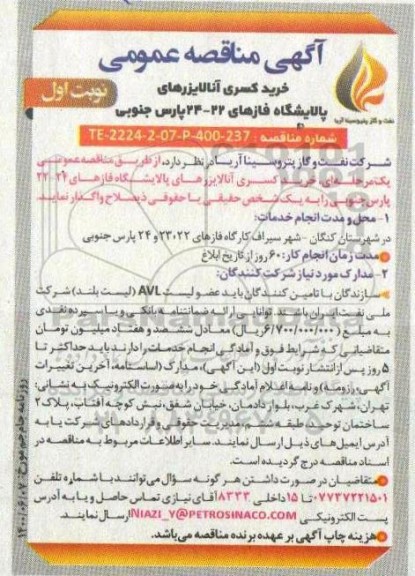 آگهی مناقصه عمومی
خرید کسری آنالایزرهای
پالایشگاه فازهای ۲۲-۲۴ پارس جنوبی
نوبت اول
نفت و گاز پتروسینا آریا
شماره مناقصه : TE-2224-2-07-P-400-237
شرکت نفت و گاز پتروسینا آریا در نظر دارد، از طریق مناقصه عمومی
یک مرحله‌ای، خرید کسری آنالایزرهای پالایشگاه فازهای ۲۴-۲۲
پارس جنوبی را به یک شخص حقیقی یا حقوقی ذیصلاح واگذار نماید.
۱- محل و مدت انجام خدمات:
در شهرستان کنگان - شهر سیراف کارگاه فازهای ۲۳،۲۲ و ۲۴ پارس جنوبی
مدت زمان انجام کار: ۶۰ روز از تاریخ ابلاغ
۲- مدارک مورد نیاز شرکت کنندگان:
سازندگان یا تامین کنندگان باید عضو لیست AVL (لیست بلند) شرکت
ملی نفت ایران باشند. توانایی ارائه ضمانتنامه بانکی و یا سپرده نقدی
به مبلغ (۶/۷۰۰/۰۰۰/۰۰۰ ریال) معادل ششصد و هفتاد میلیون تومان
متقاضیانی که شرایط فوق و آمادگی انجام خدمات را دارند باید حداکثر تا
۵ روز پس از انتشار نوبت اول (این آگهی)، مدارک (اساسنامه، آخرین تغییرات
آگهی، رزومه) و نامه اعلام آمادگی خود را به صورت الکترونیک به نشانی:
تهران، شهرک غرب، بلوار دادمان، خیابان شفق، نبش کوچه آفتاب، پلاک ۲
ساختمان توحید، طبقه ششم، مدیریت حقوقی و قراردادهای شرکت یا به
آدرس ایمیل‌های ذیل ارسال نمایند. سایر اطلاعات مربوط به مناقصه در
اسناد مناقصه درج گردیده است.
متقاضیان در صورت داشتن هر گونه سؤال می‌توانند با شماره تلفن
۰۷۷۳۷۲۲۱۵۰۱ تا ۱۵ داخلی ۸۳۳۳ آقای نیازی تماس حاصل و یا به آدرس
پست الکترونیکی NIAZI_Y@PETROSINACO.COM ارسال نمایند.
هزینه چاپ آگهی بر عهده برنده مناقصه می‌باشد.
روزنامه جام جم مورخ ۱۴۰۰/۰۶/۰۷